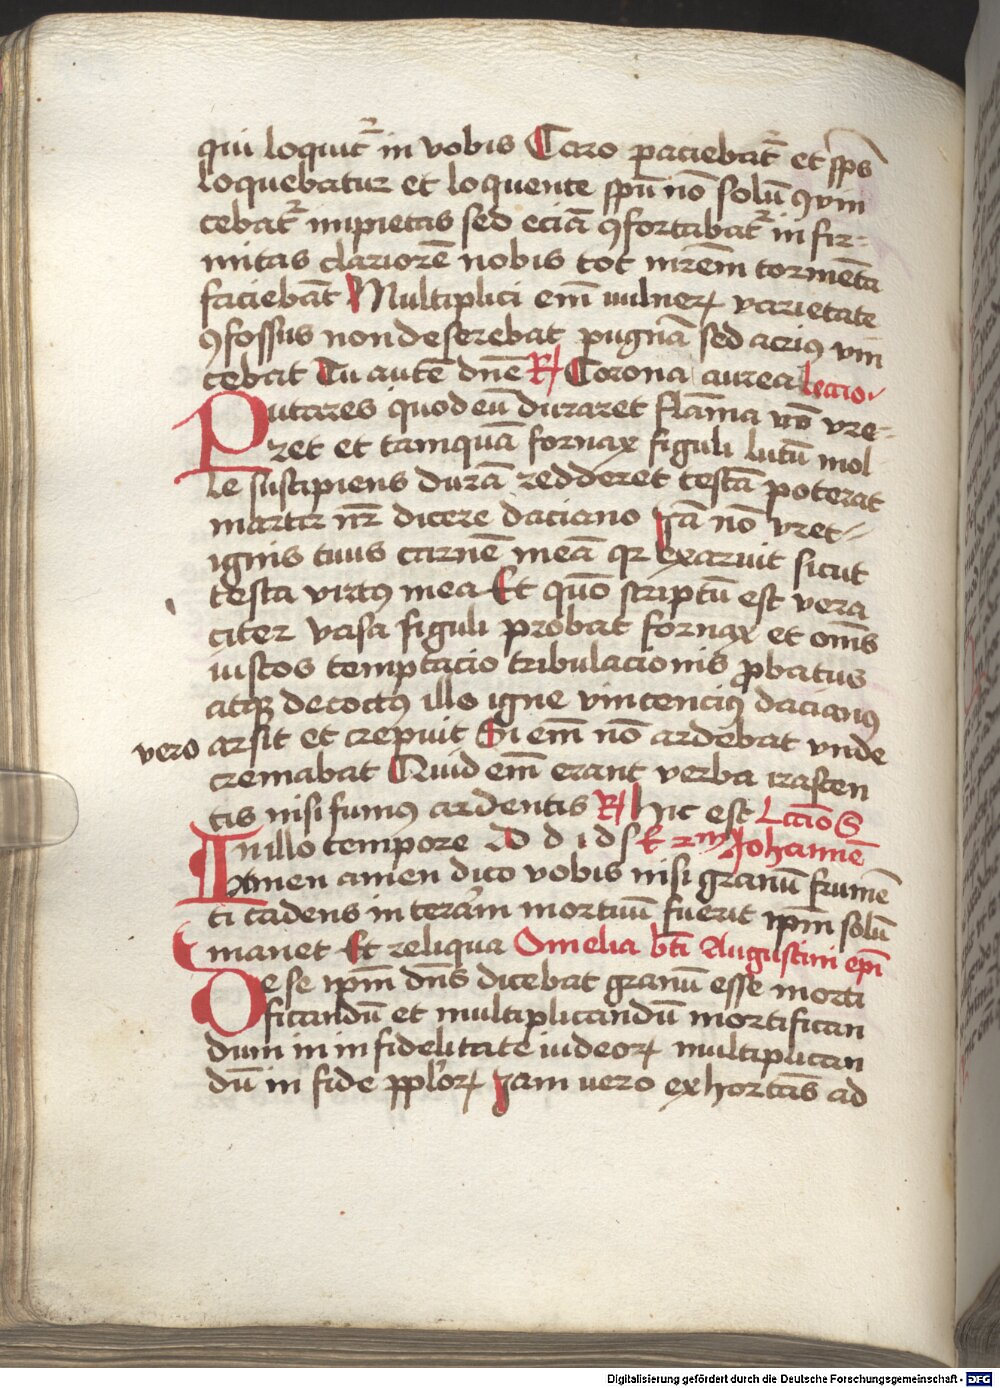 qui loquit᷑ in vobis Caro paciebat᷑ et sp̅s
loquebatur et loquente spu̅ no̅ solu̅ ꝯvin
cebat᷑ impietas sed ecia̅ ꝯfortabat᷑ in fir-
mitas clariore̅ nobis tot mr̅em torme̅ta
facieba̅t Multiplici em̅ vulneꝝ varietate
ꝯfossus non deserebat pugna̅ sed acriꝰ vin
cebat Tu aute̅ dn̅e ℟ Corona aurea leccio
Putares quod eu̅ duraret fla̅ma no̅ vre-
ret et tamqua̅ fornax figuli lutu̅ mol
le suscipiens dura̅ redderet testa̅ poterat
martir nr̅ dicere daciano Ja̅ no̅ vret
ignis tuus carne̅ mea̅ qr exaruit sicut
testa virtꝰ mea Et quo̅ scriptu̅ est vera
citer vasa figuli probat fornax et om̅s
iustos temptacio tribulacionis ꝓbatus
atqꝫ decoctꝰ illo igne vincenciꝰ dacianꝰ
vero arsit et crepuit Si em̅ no̅ ardebat vnde
cremabat Quid em̅ erant verba irascen
tis nisi fumꝰ ardentis ℟ hic est Lcc̅io S
In illo tempore D d i d s Et r m Johanne̅
Amen amen dico vobis nisi granu̅ frume̅
ti cadens in teram mortuu̅ fuerit ip̅m solu̅
manet Et reliqua Omelia bt̅i Augustini ep̅i
De se ip̅m dn̅s dicebat granu̅ esse morti
ficandu̅ et multiplicandu̅ mortifican
dum in in fidelitate iudeoꝝ multiplican
du̅ in fide pp̅loꝝ Jam vero exhorta̅s ad
Digitalisierung gefördert durch die Deutsche Forschungsgemeinschaft - DFG